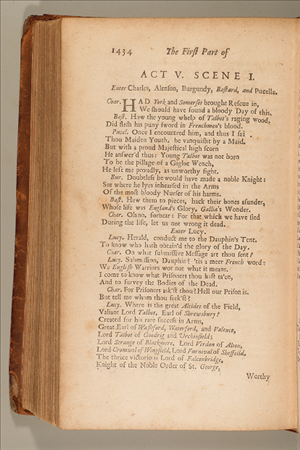 1434 The First Part of
ACT V. SCENE I.
Enter Charles, Alenson, Burgundy, Bastard, and Pucelle.
Char. HAD York and Somerset brought Rescue in,
We should have found a bloody Day of this.
Bast. How the young whelp of Talbot's raging wood,
Did flesh his puny sword in Frenchmen's blood.
Pucel. Once I encounter'd him, and thus I said
Thou Maiden Youth, be vanquisht by a Maid.
But with a proud Majestical high scorn
He answer'd thus: Young Talbot was not born
To be the pillage of a Giglot Wench,
He left me proudly, as unworthy fight.
Bur. Doubtless he would have made a noble Knight:
See where he lyes inhearsed in the Arms
Of the most bloody Nurser of his harms.
Bast. Hew them to pieces, hack their bones asunder,
Whose life was England's Glory, Gallia's Wonder.
Char. Oh no, forbear: For that which we have fled
During the life, let us not wrong it dead.
Enter Lucy.
Lucy. Herald, conduct me to the Dauphin's Tent.
To know who hath obtain'd the glory of the Day.
Char. On what submissive Message art thou sent?
Lucy. Submission, Dauphin? 'tis a meer French word:
We English Warriors wot not what it means.
I come to know what Prisoners thou hast ta'en,
And to survey the Bodies of the Dead.
Char. For Prisoners ask'st thou? Hell our Prison is.
But tell me whom thou seek'st?
Lucy. Where is the great Alcides of the Field,
Valiant Lord Talbot, Earl of Shrewsbury?
Created for his rare success in Arms,
Great Earl of Washford, Waterford, and Valence,
Lord Talbot of Goodrig and Urchinfield;
Lord Strange of Blackmere, Lord Verdon of Alton,
Lord Cromwel of Wingfield, Lord Furnival of Sheffeild,
The thrice victorious Lord of Falconbridge,
Knight of the Noble Order of St. George,
Worthy